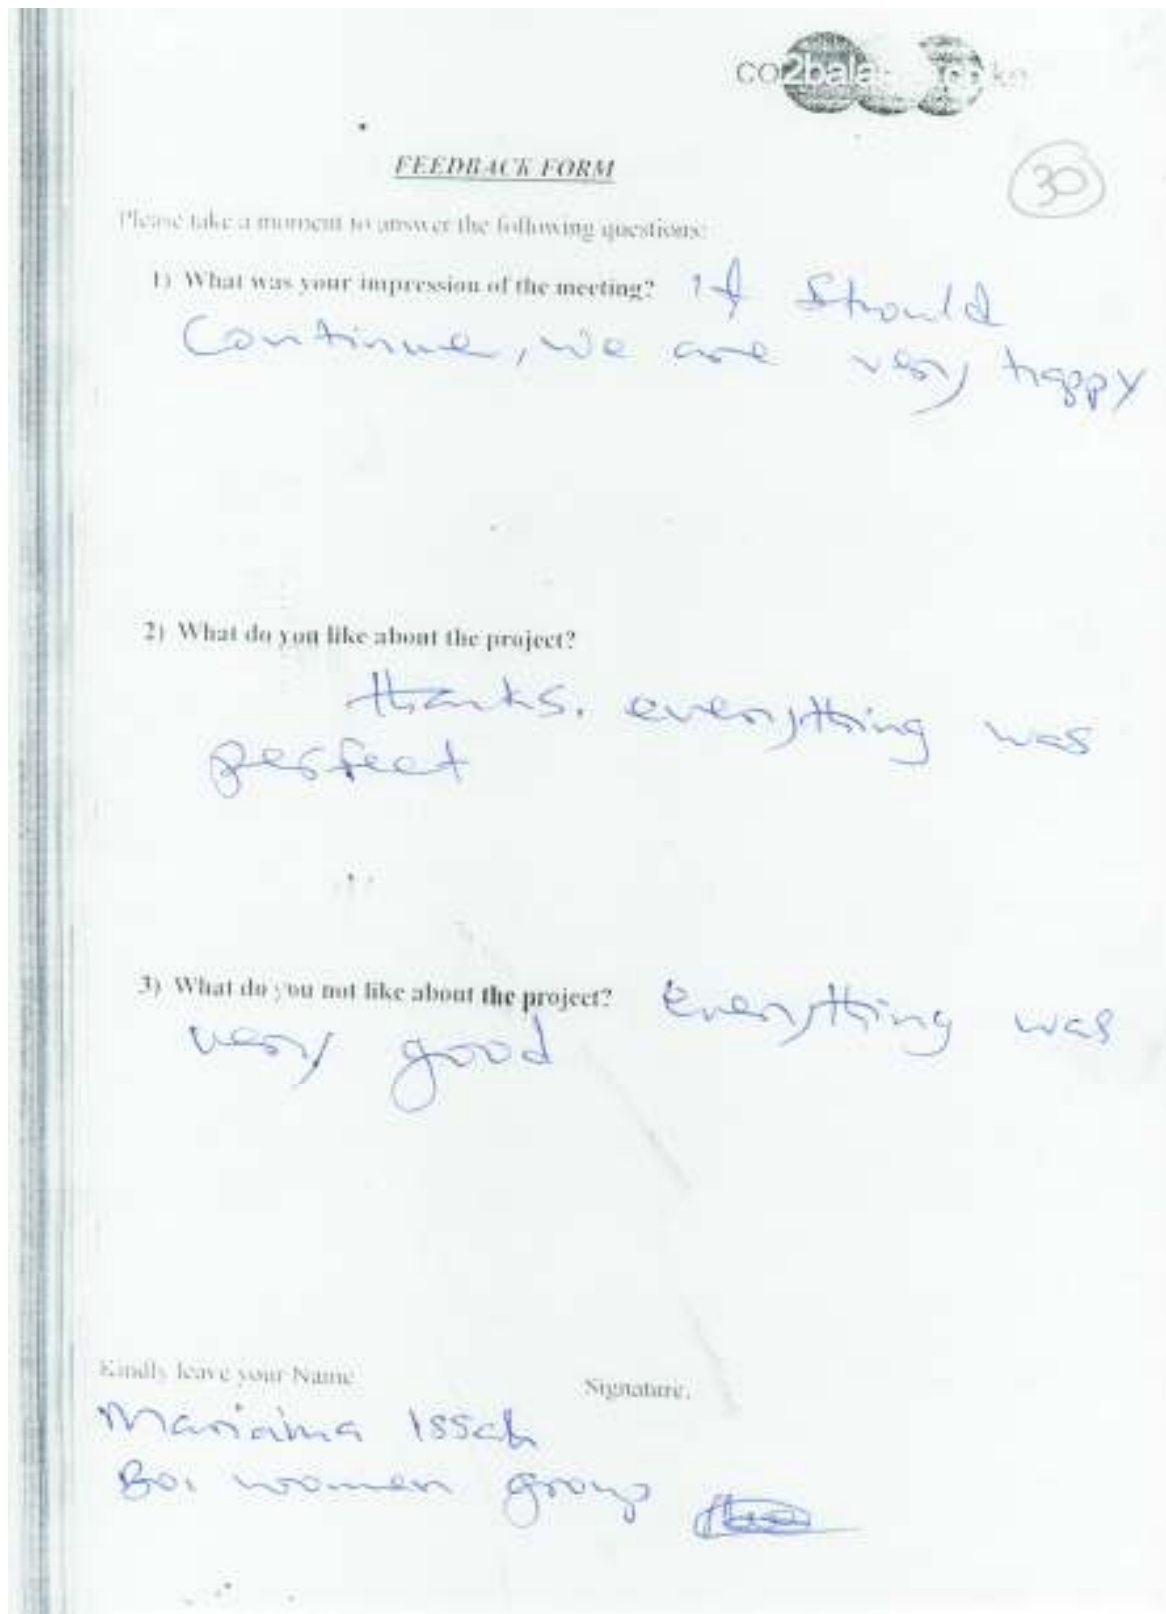 co2balance.co.ke
FEEDBACK FORM
30
Please take a moment to answer the following questions:
1) What was your impression of the meeting? It should
Continue, we are very happy
2) What do you like about the project?
thanks. everything was
perfect
3) What do you not like about the project? Everything was
very good
Kindly leave your Name
Signature.
Issah
women group